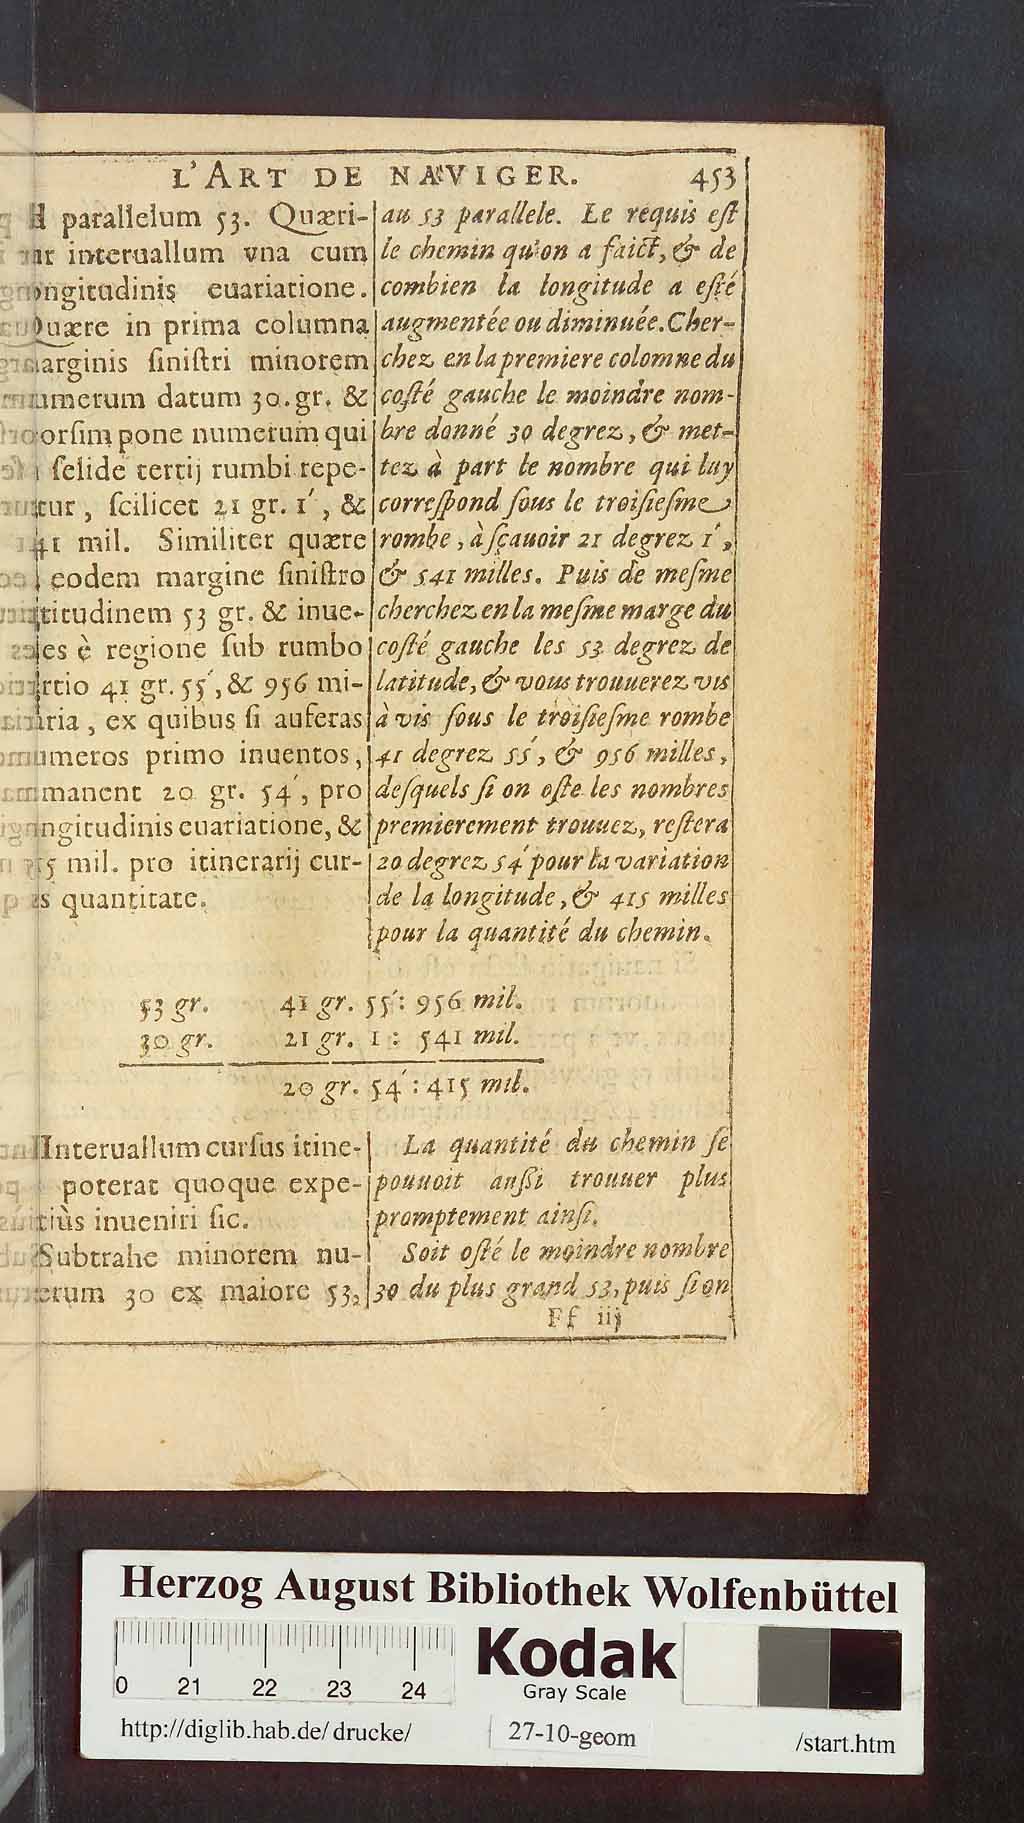 L'ART DE NAVIGER. 453
parallelum 53. Quæri-
interuallum vna cum
ongitudinis euariatione.
Quære in prima columna
arginis ſiniſtri minorem
umerum datum 30. gr. &
orſim pone numerum qui
ſelide tertij rumbi repe-
tur, ſcilicet 21 gr. 1′, &
41 mil. Similiter quære
eodem margine ſiniſtro
titudinem 53 gr. & inue-
es è regione ſub rumbo
rtio 41 gr. 55′, & 956 mi-
ria, ex quibus ſi auferas
umeros primo inuentos,
manent 20 gr. 54′, pro
ngitudinis euariatione, &
15 mil. pro itinerarij cur-
s quantitate.
au 53 parallele. Le requis eſt
le chemin qu'on a faict, & de
combien la longitude a eſté
augmentée ou diminuée. Cher-
chez en la premiere colomne du
coſté gauche le moindre nom-
bre donné 30 degrez, & met-
tez à part le nombre qui luy
correſpond ſous le troiſieſme
rombe, à ſçauoir 21 degrez 1′,
& 541 milles. Puis de meſme
cherchez en la meſme marge du
coſté gauche les 53 degrez de
latitude, & vous trouuerez vis
à vis ſous le troiſieſme rombe
41 degrez 55′, & 956 milles,
deſquels ſi on oſte les nombres
premierement trouuez, reſtera
20 degrez 54′ pour la variation
de la longitude, & 415 milles
pour la quantité du chemin.
53 gr. 41 gr. 55′: 956 mil.
30 gr. 21 gr. 1: 541 mil.
20 gr. 54′: 415 mil.
Interuallum curſus itine-
poterat quoque expe-
tiùs inueniri ſic.
Subtrahe minorem nu-
erum 30 ex maiore 53,
La quantité du chemin ſe
pouuoit auſſi trouuer plus
promptement ainſi.
Soit oſté le moindre nombre
30 du plus grand 53, puis ſi on
Ff iij
Herzog August Bibliothek Wolfenbüttel
0 21 22 23 24
Kodak
Gray Scale
http://diglib.hab.de/drucke/ 27-10-geom /start.htm